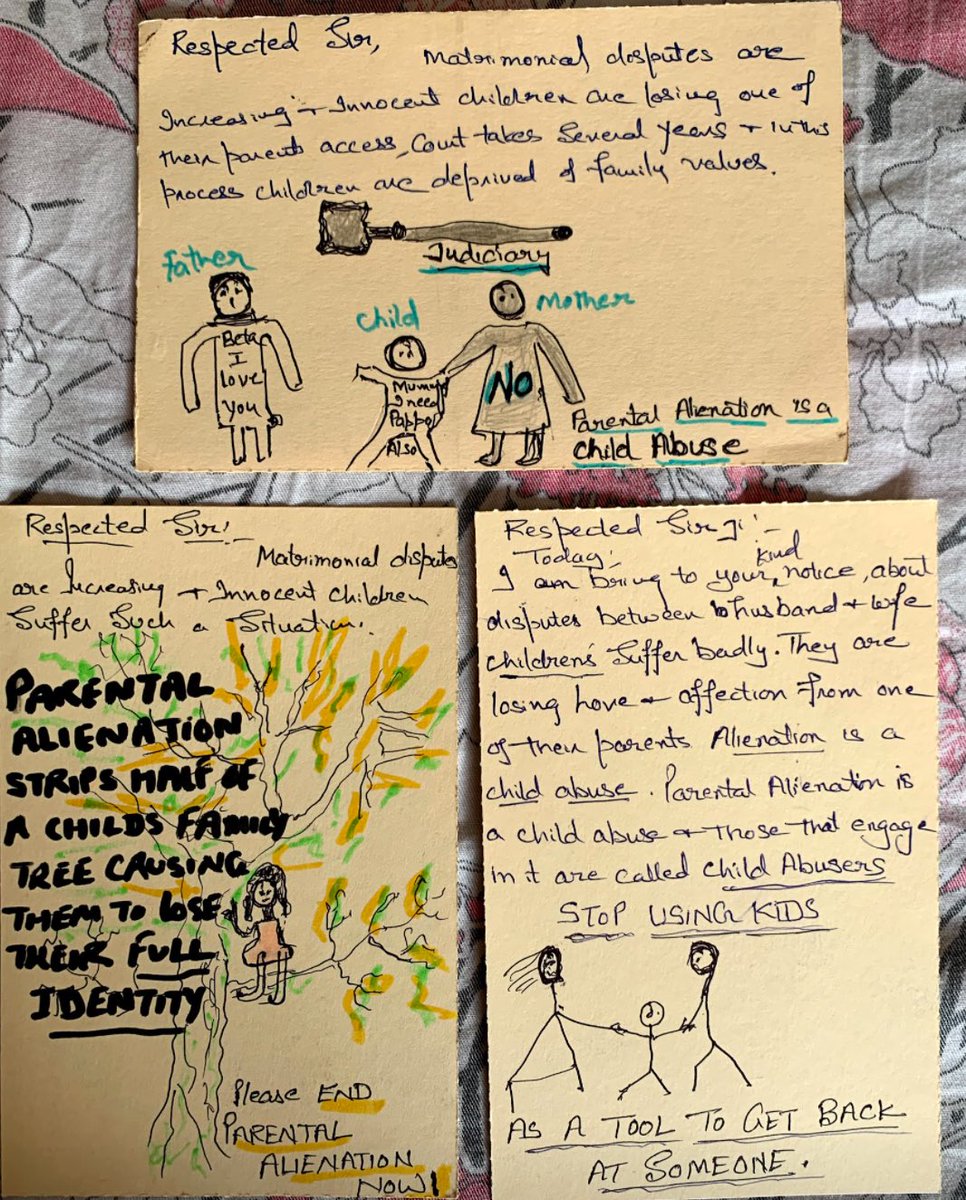 Respected Sir,
Matrimonial disputes are
Increasing + Innocent children are losing one of
their parents access, Court takes Several years + In this
process children are deprived of family values.
Judiciary
Father
Child
Mother
Beta
I
love
you
Mummy
I need
Pappa
Also
NO
Parental Alienation is a
child Abuse
Respected Sir:-
Matrimonial disputes
are Increasing + Innocent children
Suffer Such a Situation.
PARENTAL
ALIENATION
STRIPS HALF OF
A CHILDS FAMILY
TREE CAUSING
THEM TO LOSE
THEIR FULL
IDENTITY
Please END
PARENTAL
ALIENATION
NOW!
Respected Sir Ji:-
Today
I am bring to your kind notice, about
disputes between husband + wife
children's Suffer badly. They are
losing love + affection from one
of their parents Alienation is a
child abuse. Parental Alienation is
a child abuse + those that engage
in it are called Child Abusers
STOP USING KIDS
AS A TOOL TO GET BACK
AT SOMEONE.